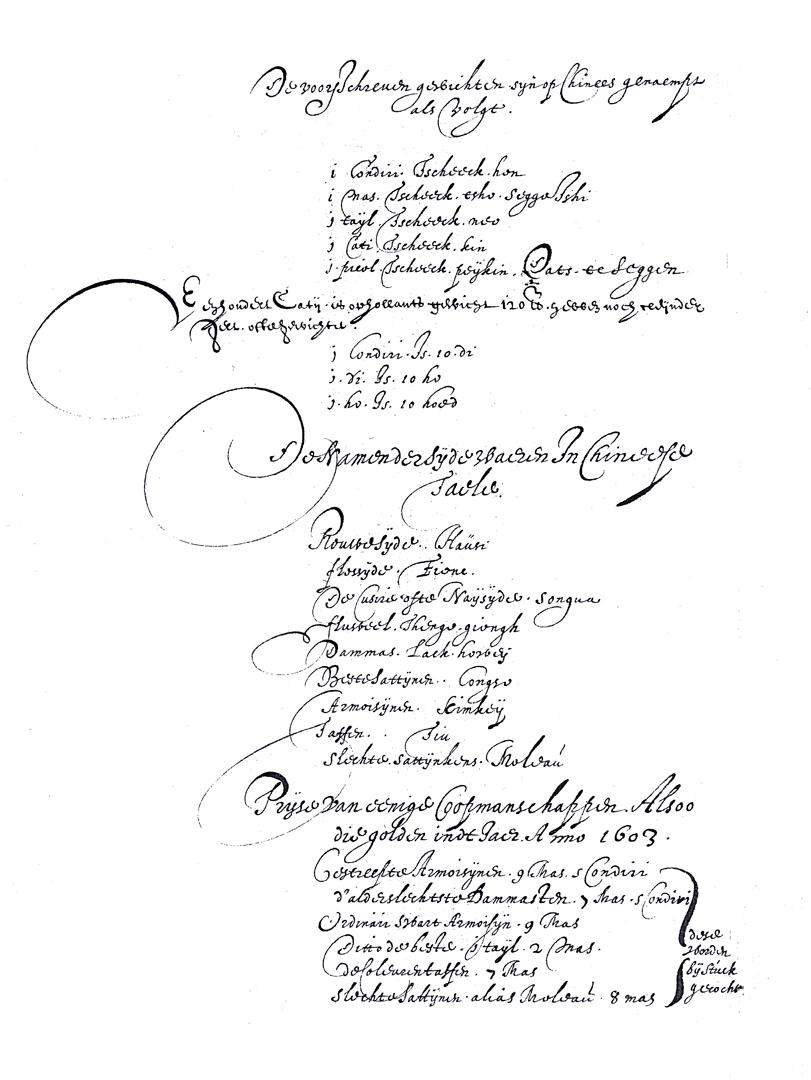 De voorschreven gewichten syn op Chinees genaempt
als volgt.
1 Condiri. Tscheeck. hon
1 mas. Tscheeck. tsho. seggo Tshi
1 tayl. Tscheeck. neo
1 Cati. Tscheeck. kin
1. picol. Tscheeck. peykin. Dats. te seggen
Een hondert Catij. is op hollants gewicht 120 lb. gewogen noch te
1 Condiri. Is. 10. di
1. di. Is. 10 ho
1. ho. Is. 10 hoed
De Namen der Syde waeren In Chineese
Taele.
Rouwe syde. Haüsi
flosyde. Fione.
De Cusire ofte Naysyde. songua
fluweel. Thenge-giongh
Dammas. Lack. howeij
Beste Sattynen. Congso
Armoisynen. Kimkeij
Taffen. Tiu
Slechte. Sattynkens. Moleaú
Pryse van eenige Coopmanschappen. Alsoo
die golden indt Jaer. Anno 1603.
Gestreefte Armoisynen. 9 Mas. 5 Condiri
d'alderslechtste Dammasten. 7 Mas. 5 Condiri
Ordinari Swart Armoisyn. 9 Mas
Ditto de beste. 1 tayl. 2 Mas.
de Coleuren taffen. 7 Mas
Slechte Sattynen. alias Moleaú. 8 mas
dese
worden
bij stuck
gecocht.